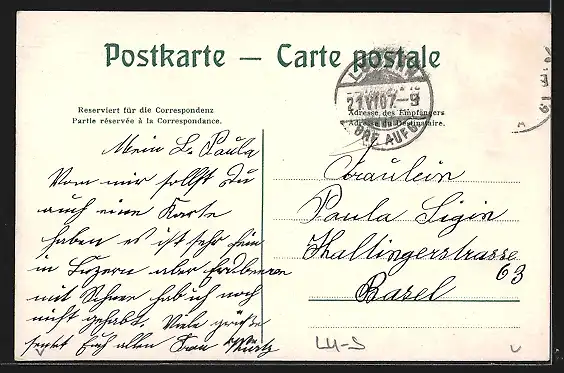 Postkarte — Carte postale
Reserviert für die Correspondenz
Partie réservée à la Correspondance.
Adresse des Empfängers
Adresse du Destinataire.
LUZERN
21 VI 07.-9
BRF. AUFG.
Mein L. Paula
Von mir sollst Du
auch eine Karte
haben es ist sehr fein
in Luzern aber Erdbeeren
mit Schnee hab ich noch
nicht gehabt. Viele grüße
sendet Euch allen Frau Kurtz
Fräulein
Paula Sigin
Hallingerstrasse
63
Basel
LU-S